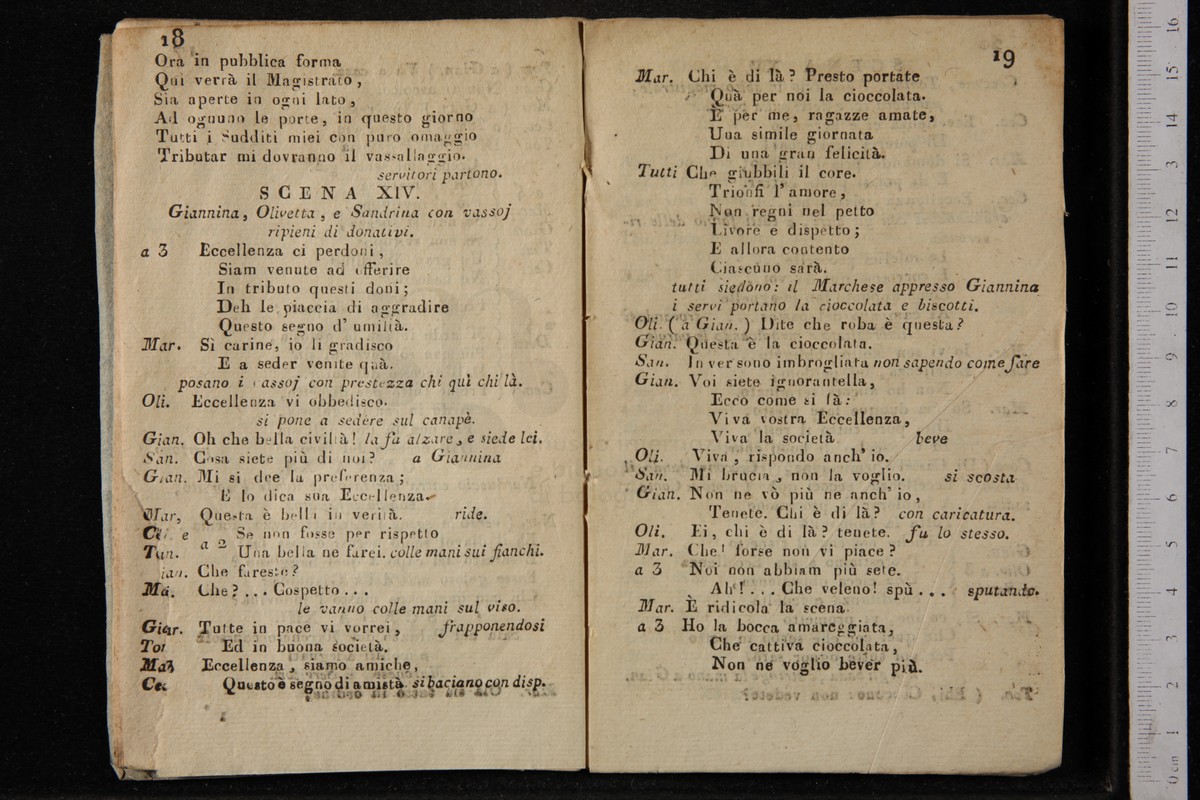 18
Ora in pubblica forma
Qui verrà il Magistrato,
Sia aperte in ogni lato,
Ad ognuno le porte, in questo giorno
Tutti i Sudditi miei con puro omaggio
Tributar mi dovranno il vassallaggio.
servitori partono.
SCENA XIV.
Giannina, Olivetta, e Sandrina con vassoj
ripieni di donativi.
a 3 Eccellenza ci perdoni,
Siam venute ad offerire
In tributo questi doni;
Deh le piaccia di aggradire
Questo segno d' umiltà.
Mar. Sì carine, io li gradisco
E a seder venite quà.
posano i vassoj con prestezza chi quì chi là.
Oli. Eccellenza vi obbedisco.
si pone a sedere sul canapè.
Gian. Oh che bella civiltà! la fa alzare, e siede lei.
San. Cosa siete più di noi? a Giannina
Gian. Mi si dee la preferenza;
E lo dica sua Eccellenza.
Mar, Questa è bella in verità. ride.
e a 2 Se non fosse per rispetto
Una bella ne farei. colle mani sui fianchi.
ian. Che fareste?
Ma. Che? ... Cospetto ...
le vanno colle mani sul viso.
Tutte in pace vi vorrei, frapponendosi
Ed in buona società.
Eccellenza, siamo amiche,
Questo è segno di amistà. si baciano con disp.
19
Mar. Chi è di là? Presto portate
Quà per noi la cioccolata.
E per me, ragazze amate,
Una simile giornata
Di una gran felicità.
Tutti Che giubbili il core.
Trionfi l' amore,
Non regni nel petto
Livore e dispetto;
E allora contento
Ciascuno sarà.
tutti siedono: il Marchese appresso Giannina
i servi portano la cioccolata e biscotti.
Oli. ( a Gian. ) Dite che roba è questa?
Gian. Questa è la cioccolata.
San. In ver sono imbrogliata non sapendo come fare
Gian. Voi siete ignorantella,
Ecco come si fà:
Viva vostra Eccellenza,
Viva la società beve
Oli. Viva, rispondo anch' io.
San. Mi brucia, non la voglio. si scosta
Gian. Non ne vò più ne anch' io,
Tenete. Chi è di là? con caricatura.
Oli. Ei, chi è di là? tenete. fa lo stesso.
Mar. Che! forse non vi piace?
a 3 Noi non abbiam più sete.
Ah! ... Che veleno! spù ... sputando.
Mar. E ridicola la scena.
a 3 Ho la bocca amareggiata,
Che cattiva cioccolata,
Non ne voglio bever più.
0 cm 1 2 3 4 5 6 7 8 9 10 11 12 13 14 15 16